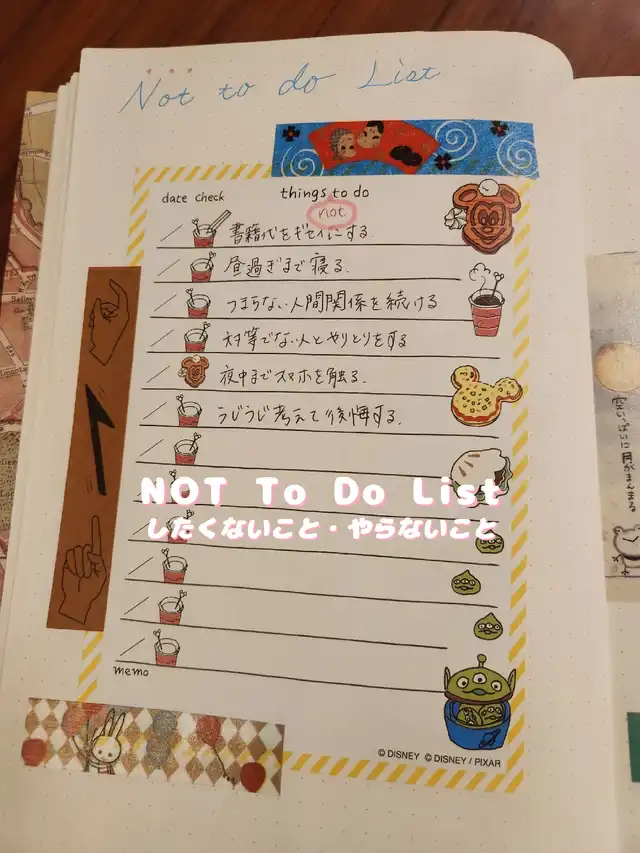 Not to do List
date check things to do
not
書籍代をギセイにする.
昼過ぎまで寝る.
つまらない人間関係を続ける
対等でない人とやりとりをする
夜中までスマホを触る.
うじうじ考えて後悔する.
NOT To Do List
したくないこと・やらないこと
memo
© DISNEY © DISNEY / PIXAR
空いっぱいに月がまんまる